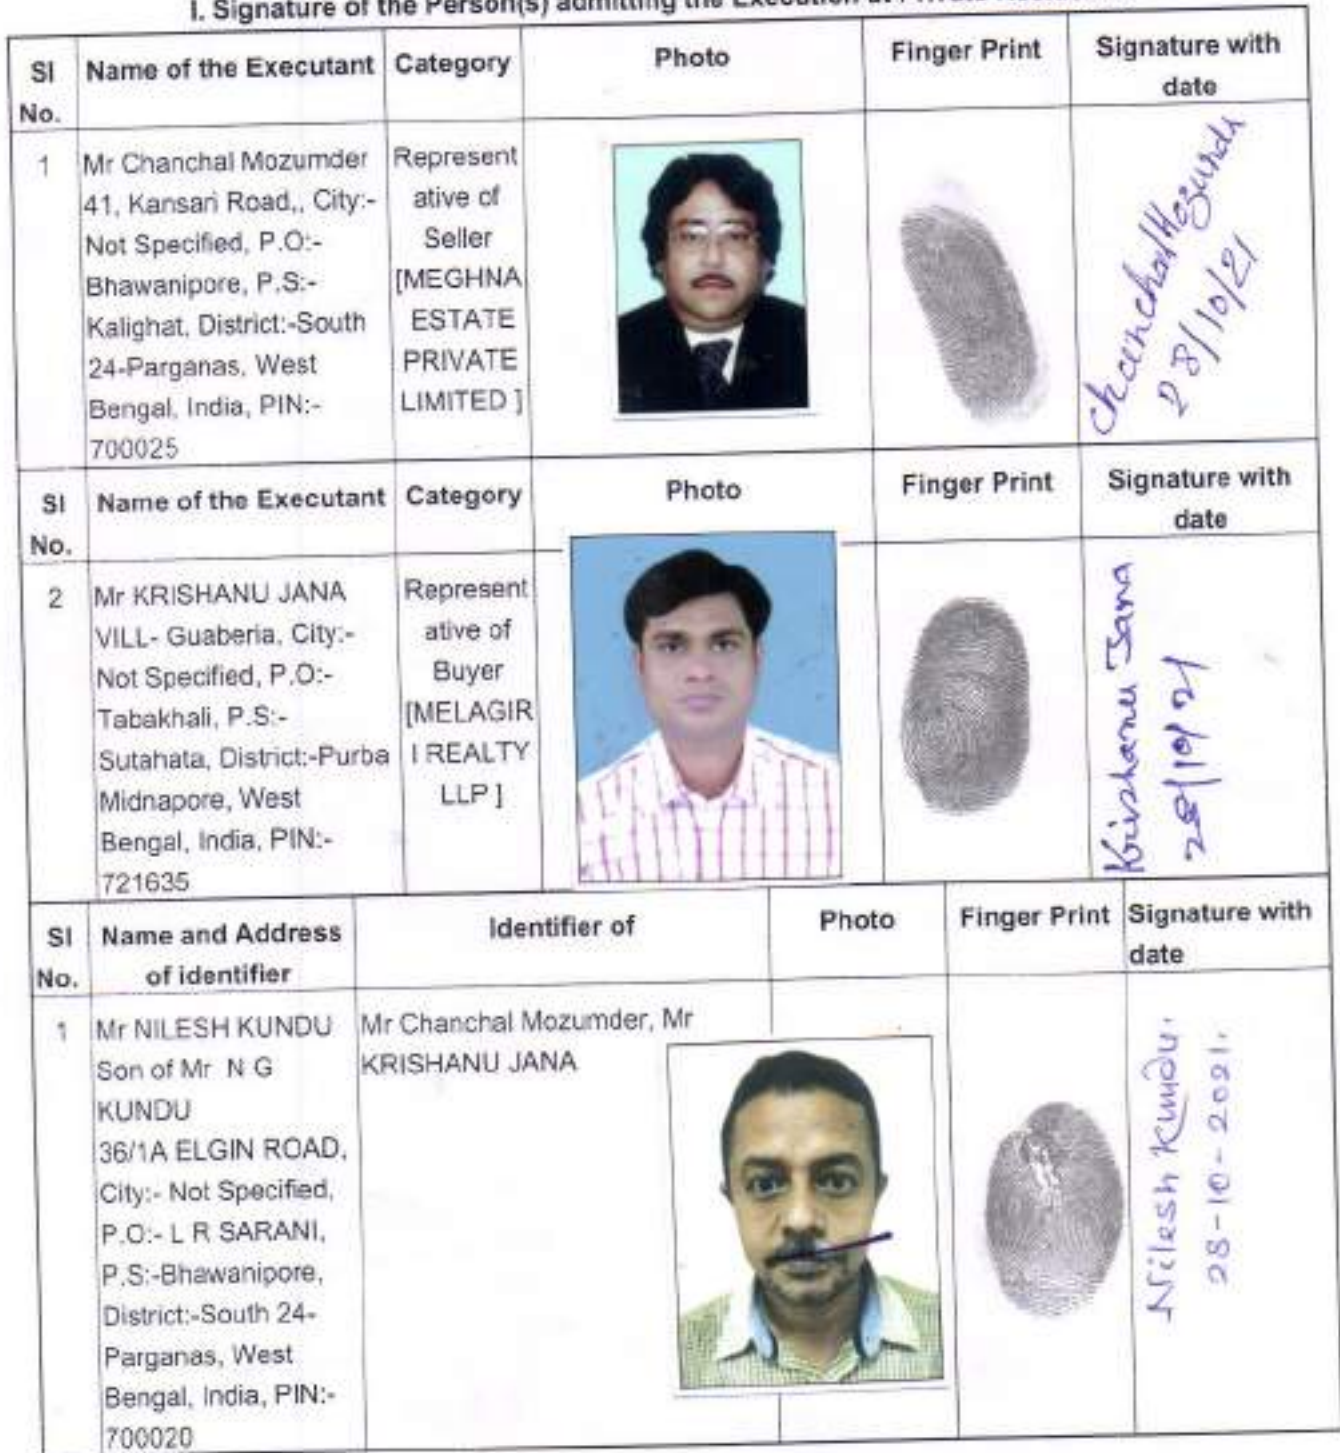 I. Signature of the Person(s) admitting the Execution at Private
SI No.
Name of the Executant
Category
Photo
Finger Print
Signature with
date
1
Mr Chanchal Mozumder
41, Kansari Road,, City:-
Not Specified, P.O:-
Bhawanipore, P.S:-
Kalighat, District:-South
24-Parganas, West
Bengal, India, PIN:-
700025
Represent
ative of
Seller
[MEGHNA
ESTATE
PRIVATE
LIMITED ]
Chanchal Mozumder
28/10/21
SI No.
Name of the Executant
Category
Photo
Finger Print
Signature with
date
2
Mr KRISHANU JANA
VILL- Guaberia, City:-
Not Specified, P.O:-
Tabakhali, P.S:-
Sutahata, District:-Purba
Midnapore, West
Bengal, India, PIN:-
721635
Represent
ative of
Buyer
[MELAGIR
I REALTY
LLP ]
Krishanu Jana
28/10/21
SI No.
Name and Address
of identifier
Identifier of
Photo
Finger Print
Signature with
date
1
Mr NILESH KUNDU
Son of Mr N G
KUNDU
36/1A ELGIN ROAD,
City:- Not Specified,
P.O:- L R SARANI,
P.S:-Bhawanipore,
District:-South 24-
Parganas, West
Bengal, India, PIN:-
700020
Mr Chanchal Mozumder, Mr
KRISHANU JANA
Nilesh Kundu.
28-10-2021.